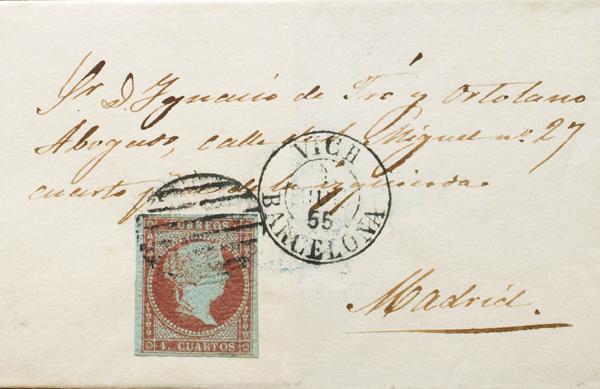 Sr. D. Ignacio de Tró y Ortolano
Abogado, calle de Sn. Miguel nº. 27
cuarto de la izquierda.
VICH
55
BARCELONA
CORREOS
4. CUARTOS
Madrid.